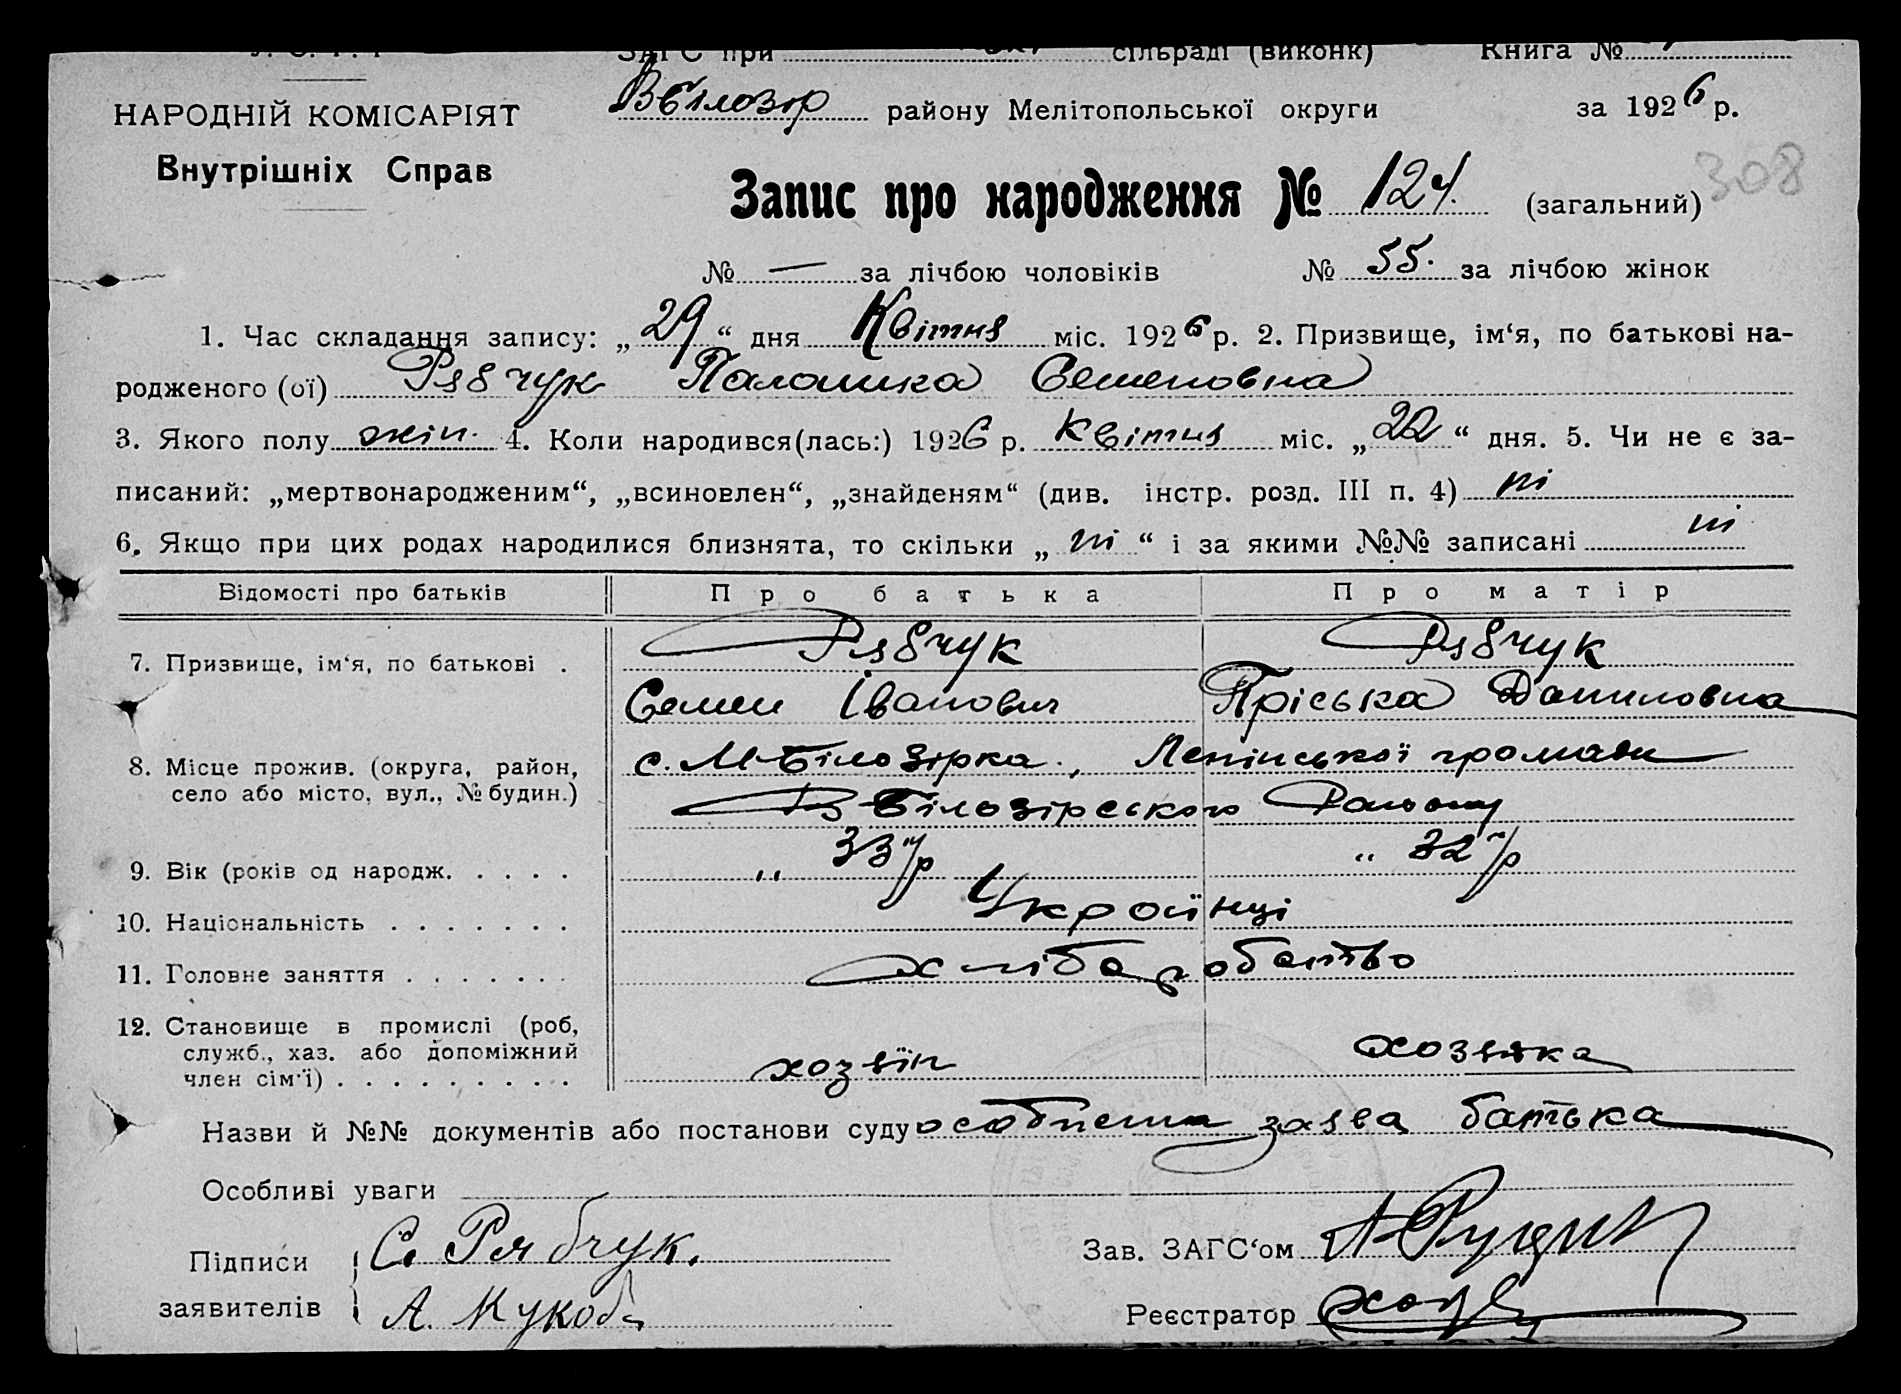 ЗАГС при сільраді (виконк) Книга №
НАРОДНІЙ КОМІСАРІЯТ
Внутрішніх Справ
Вбілозір району Мелітопольської округи за 1926 р.
308
Запис про народження № 124. (загальний)
№ — за лічбою чоловіків № 55. за лічбою жінок
1. Час складання запису: „29“ дня Квітня міс. 1926 р. 2. Призвище, ім‘я, по батькові на-
родженого (ої) Рябчук Палашка Семеновна
3. Якого полу жін. 4. Коли народився(лась:) 1926 р. квітня міс. „22“ дня. 5. Чи не є за-
писаний: „мертвонародженим“, „всиновлен“, „знайденям“ (див. інстр. розд. III п. 4) ні
6. Якщо при цих родах народилися близнята, то скільки „ні“ і за якими №№ записані ні
Відомості про батьків Про батька Про матір
7. Призвище, ім‘я, по батькові . Рябчук Рябчук
Семен Іванович Пріська Даниловна
8. Місце прожив. (округа, район, село або місто, вул., № будин.) с. М-Білозірка., Ленінської громади
В-Білозірського Району
9. Вік (років од народж. . . . . „ 33 р „ 32 р
10. Національність . . . . . . . Українці
11. Головне заняття . . . . . . . хліборобство
12. Становище в промислі (роб,
служб., хаз. або допоміжний
член сім‘ї) . . . . . . . . . . хозяїн хозяйка
Назви й №№ документів або постанови суду особиста заява батька
Особливі уваги
Підписи С. Рябчук. Зав. ЗАГС‘ом
заявителів А. Кукоба Реєстратор